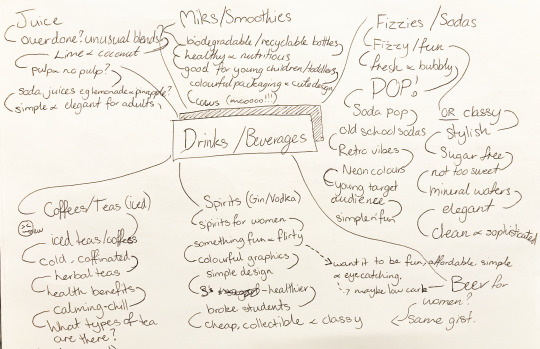 Juice
overdone? unusual blends
Lime & coconut
pulp & no pulp?
soda, juices eg lemonade & pineapple?
simple & elegant for adults
Milks/Smoothies
biodegradable/recyclable bottles
healthy & nutritious
good for young children/toddlers
colourful packaging & cute design
cows (mooooo!!!)
Fizzies/Sodas
Fizzy/fun
fresh & bubbly
POP!
Soda pop
Old school sodas
Retro vibes
Neon colours
young target
audience
simple n' fun
OR classy
stylish
Sugar free
not too sweet
mineral waters
elegant
clean & sophisticated
Drinks/Beverages
Coffees/Teas (iced)
iced teas/coffees
cold, caffinated
herbal teas
health benefits
calming-chill
What types of tea
are there?
Spirits (Gin/Vodka)
spirits for women
something fun & flirty
colourful graphics
simple design
healthier
broke students
cheap, collectible & classy
want it to be fun, affordable, simple
& eyecatching,
maybe low carb
Beer for
women?
same gist.